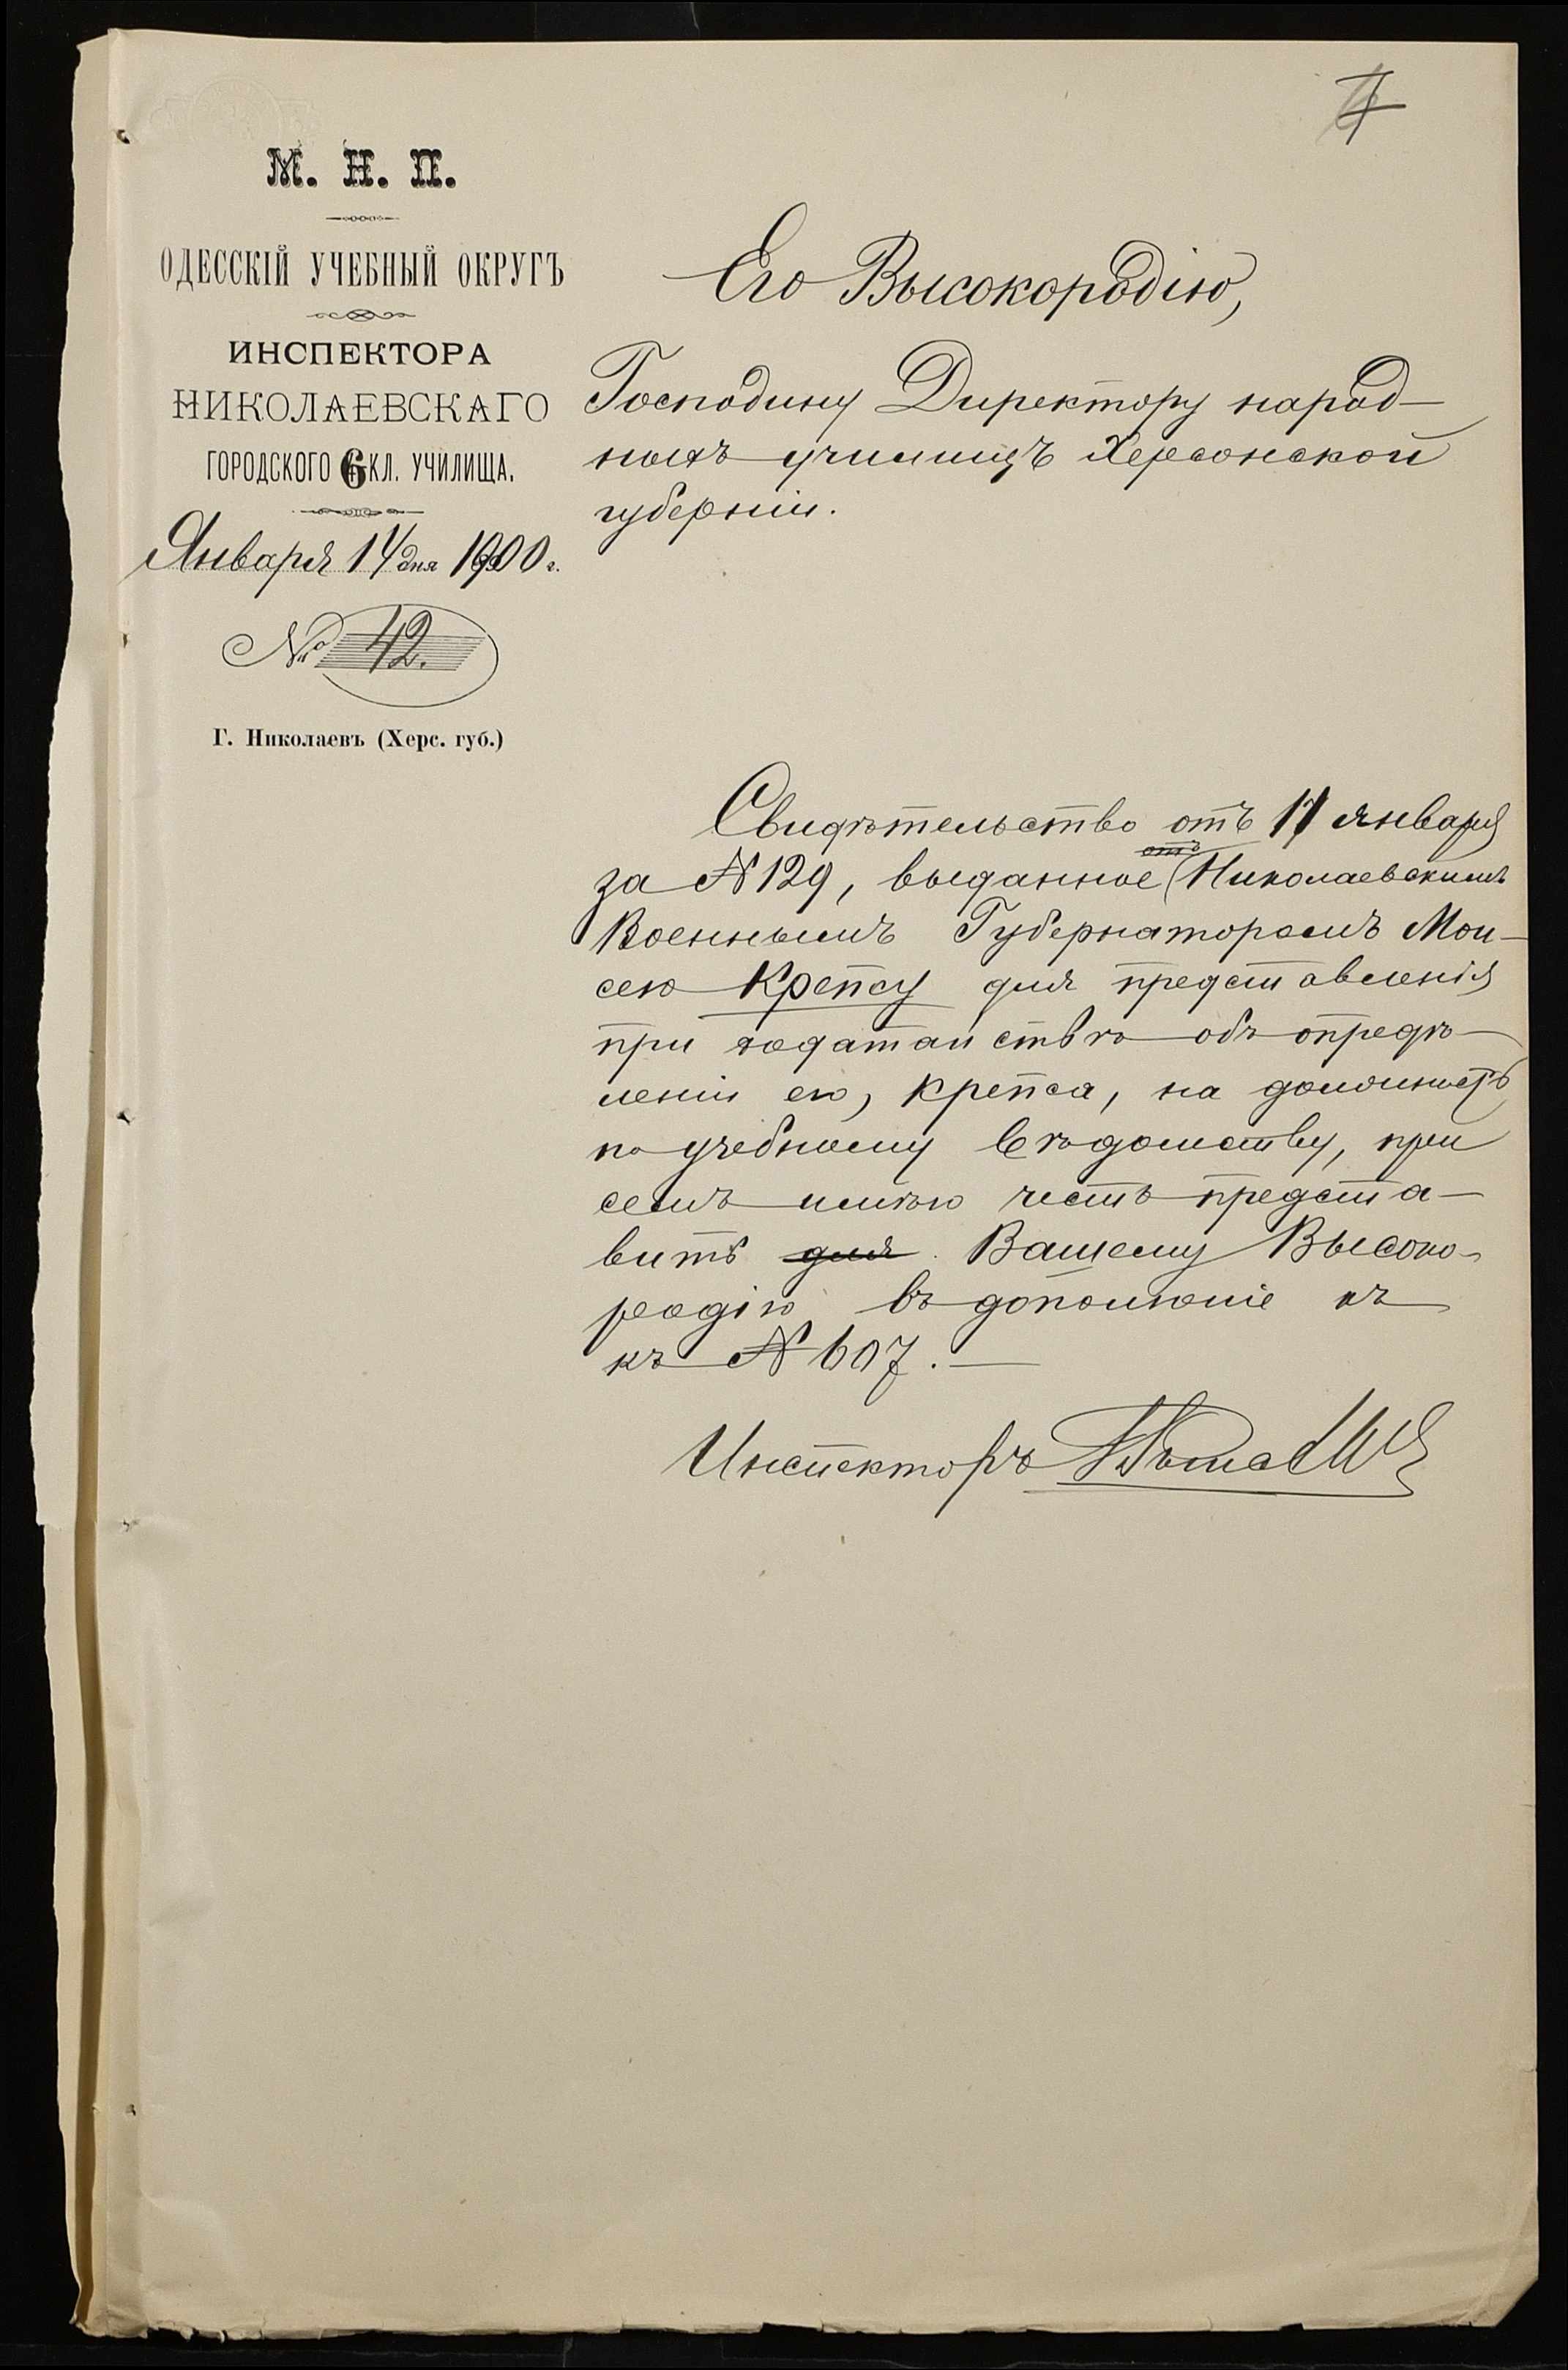 7
М. Н. П.
ОДЕССКІЙ УЧЕБНЫЙ ОКРУГЪ
ИНСПЕКТОРА
НИКОЛАЕВСКАГО
ГОРОДСКОГО 6 КЛ. УЧИЛИЩА.
Января 14 дня 1900 г.
№ 42.
Г. Николаевъ (Херс. губ.)
Его Высокородію,
Господину Директору народ-
ныхъ училищъ Херсонской
губерніи.
Свидѣтельство отъ 11 января
за № 129, выданное Николаевскимъ
Военнымъ Губернаторомъ Мои-
сею Крепсу для представленія
при ходатайствѣ объ опредѣ-
леніи его, Крепса, на должность
по учебному вѣдомству, при
семъ имѣю честь предста-
вить для Вашему Высоко-
родію въ дополненіе къ
къ № 607.—
Инспекторъ